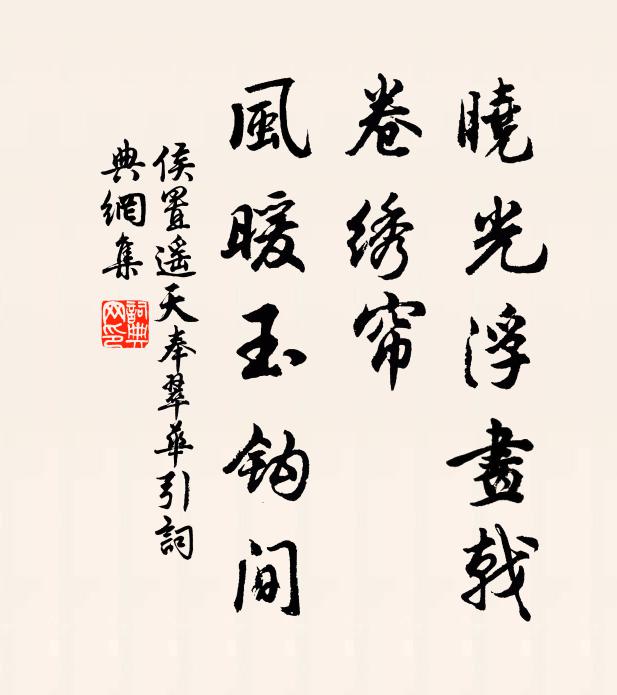 曉光浮畫戟
卷綉帘
風暖玉鈎间
侯置遥天奉翠華引詞
典網集
詞典网印